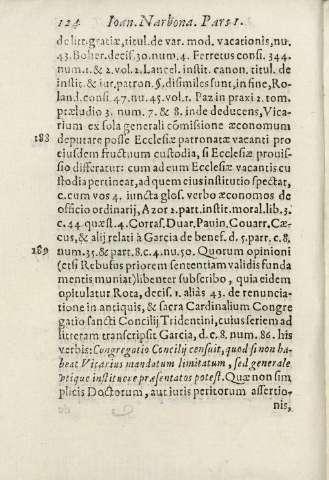 124 Ioan. Narbona. Pars 1.
de litt. gratiæ, titul. de var. mod. vacationis, nu.
43. Boher. decis. 30. num. 4. Ferretus consi. 344.
num. 1. & 2. vol. 2. Lancel. instit. canon. titul. de
instit. & iur. patron. §. dissimiles sunt, in fine, Ro-
land. consi. 47. nu. 45. vol. 1. Paz in praxi 2. tom.
præludio 3. num. 7. & 8. inde deducens, Vica-
rium ex sola generali cõmissione æconomum
183 deputare posse Ecclesiæ patronatæ vacanti pro
eiusdem fructuum custodia, si Ecclesiæ prouis-
sio differatur: cum ad eum Ecclesiæ vacantis cu
stodia pertineat, ad quem eius institutio spectat,
c. cum vos 4. iuncta glos. verbo æconomos de
officio ordinarij, Azor 2. part. instit. moral. lib. 3.
c. 44 quæst. 4. Corras. Duar. Pauin. Couarr. Cæ-
cus, & alij relati à Garcia de benef. d. 5. part. c. 8.
189 num. 35. & part. 8. c. 4. nu. 50. Quorum opinioni
(etsi Rebufus priorem sententiam validis funda
mentis muniat) libenter subscribo, quia eidem
opitulatur Rota, decis. 1. aliàs 43. de renuncia-
tione in antiquis, & sacra Cardinalium Congre
gatio sancti Concilij Tridentini, cuius seriem ad
litteram transcripsit Garcia, d. c. 8. num. 86. his
verbis: Congregatio Concilij censuit, quod si non ha-
beat Vicarius mandatum limitatum, sed generale
vtique instituere præsentatos potest. Quæ non sim
plicis Doctorum, aut iuris peritorum assertio-
nis,